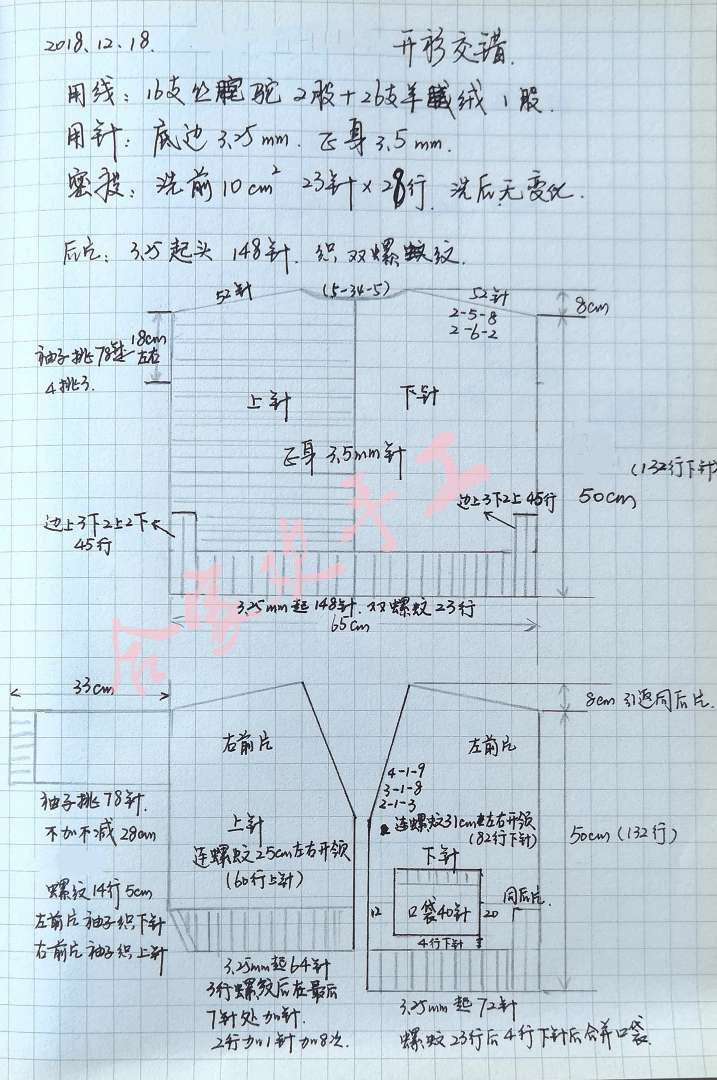 2018.12.18.
开衫交错.
用线: 16支丝 驼 2股+26支羊 绒 1股.
用针: 底边 3.25mm. 正身 3.5mm.
密度: 洗前 10cm² 23针×28行. 洗后无变化.
后片: 3.25起头 148针. 织双螺纹.
52针
(5-34-5)
52针
2-5-8
2-6-2
8cm
袖子挑78针
4挑3.
18cm
左右
上针
下针
正身 3.5mm针
(132行下针)
50cm
边上3下2上2下
45行
边上3下2上 45行
3.25mm起148针. 双螺纹23行
65cm
金 手工
33cm
8cm 引返同后片.
右前片
左前片
4-1-9
3-1-8
2-1-3
袖子挑78针.
不加不减28cm
上针
连螺纹25cm左右开领
(60行上针)
连螺纹31cm 左右开领
(82行下针)
50cm (132行)
下针
螺纹14行5cm
左前片袖子织下针
右前片袖子织上针
12
口袋40针
20
同后片.
4行下针
3.25mm起64针
3行螺纹后在最后
7针处加针.
2行加1针加8次.
3.25mm起72针
螺纹23行后4行下针后合并口袋.